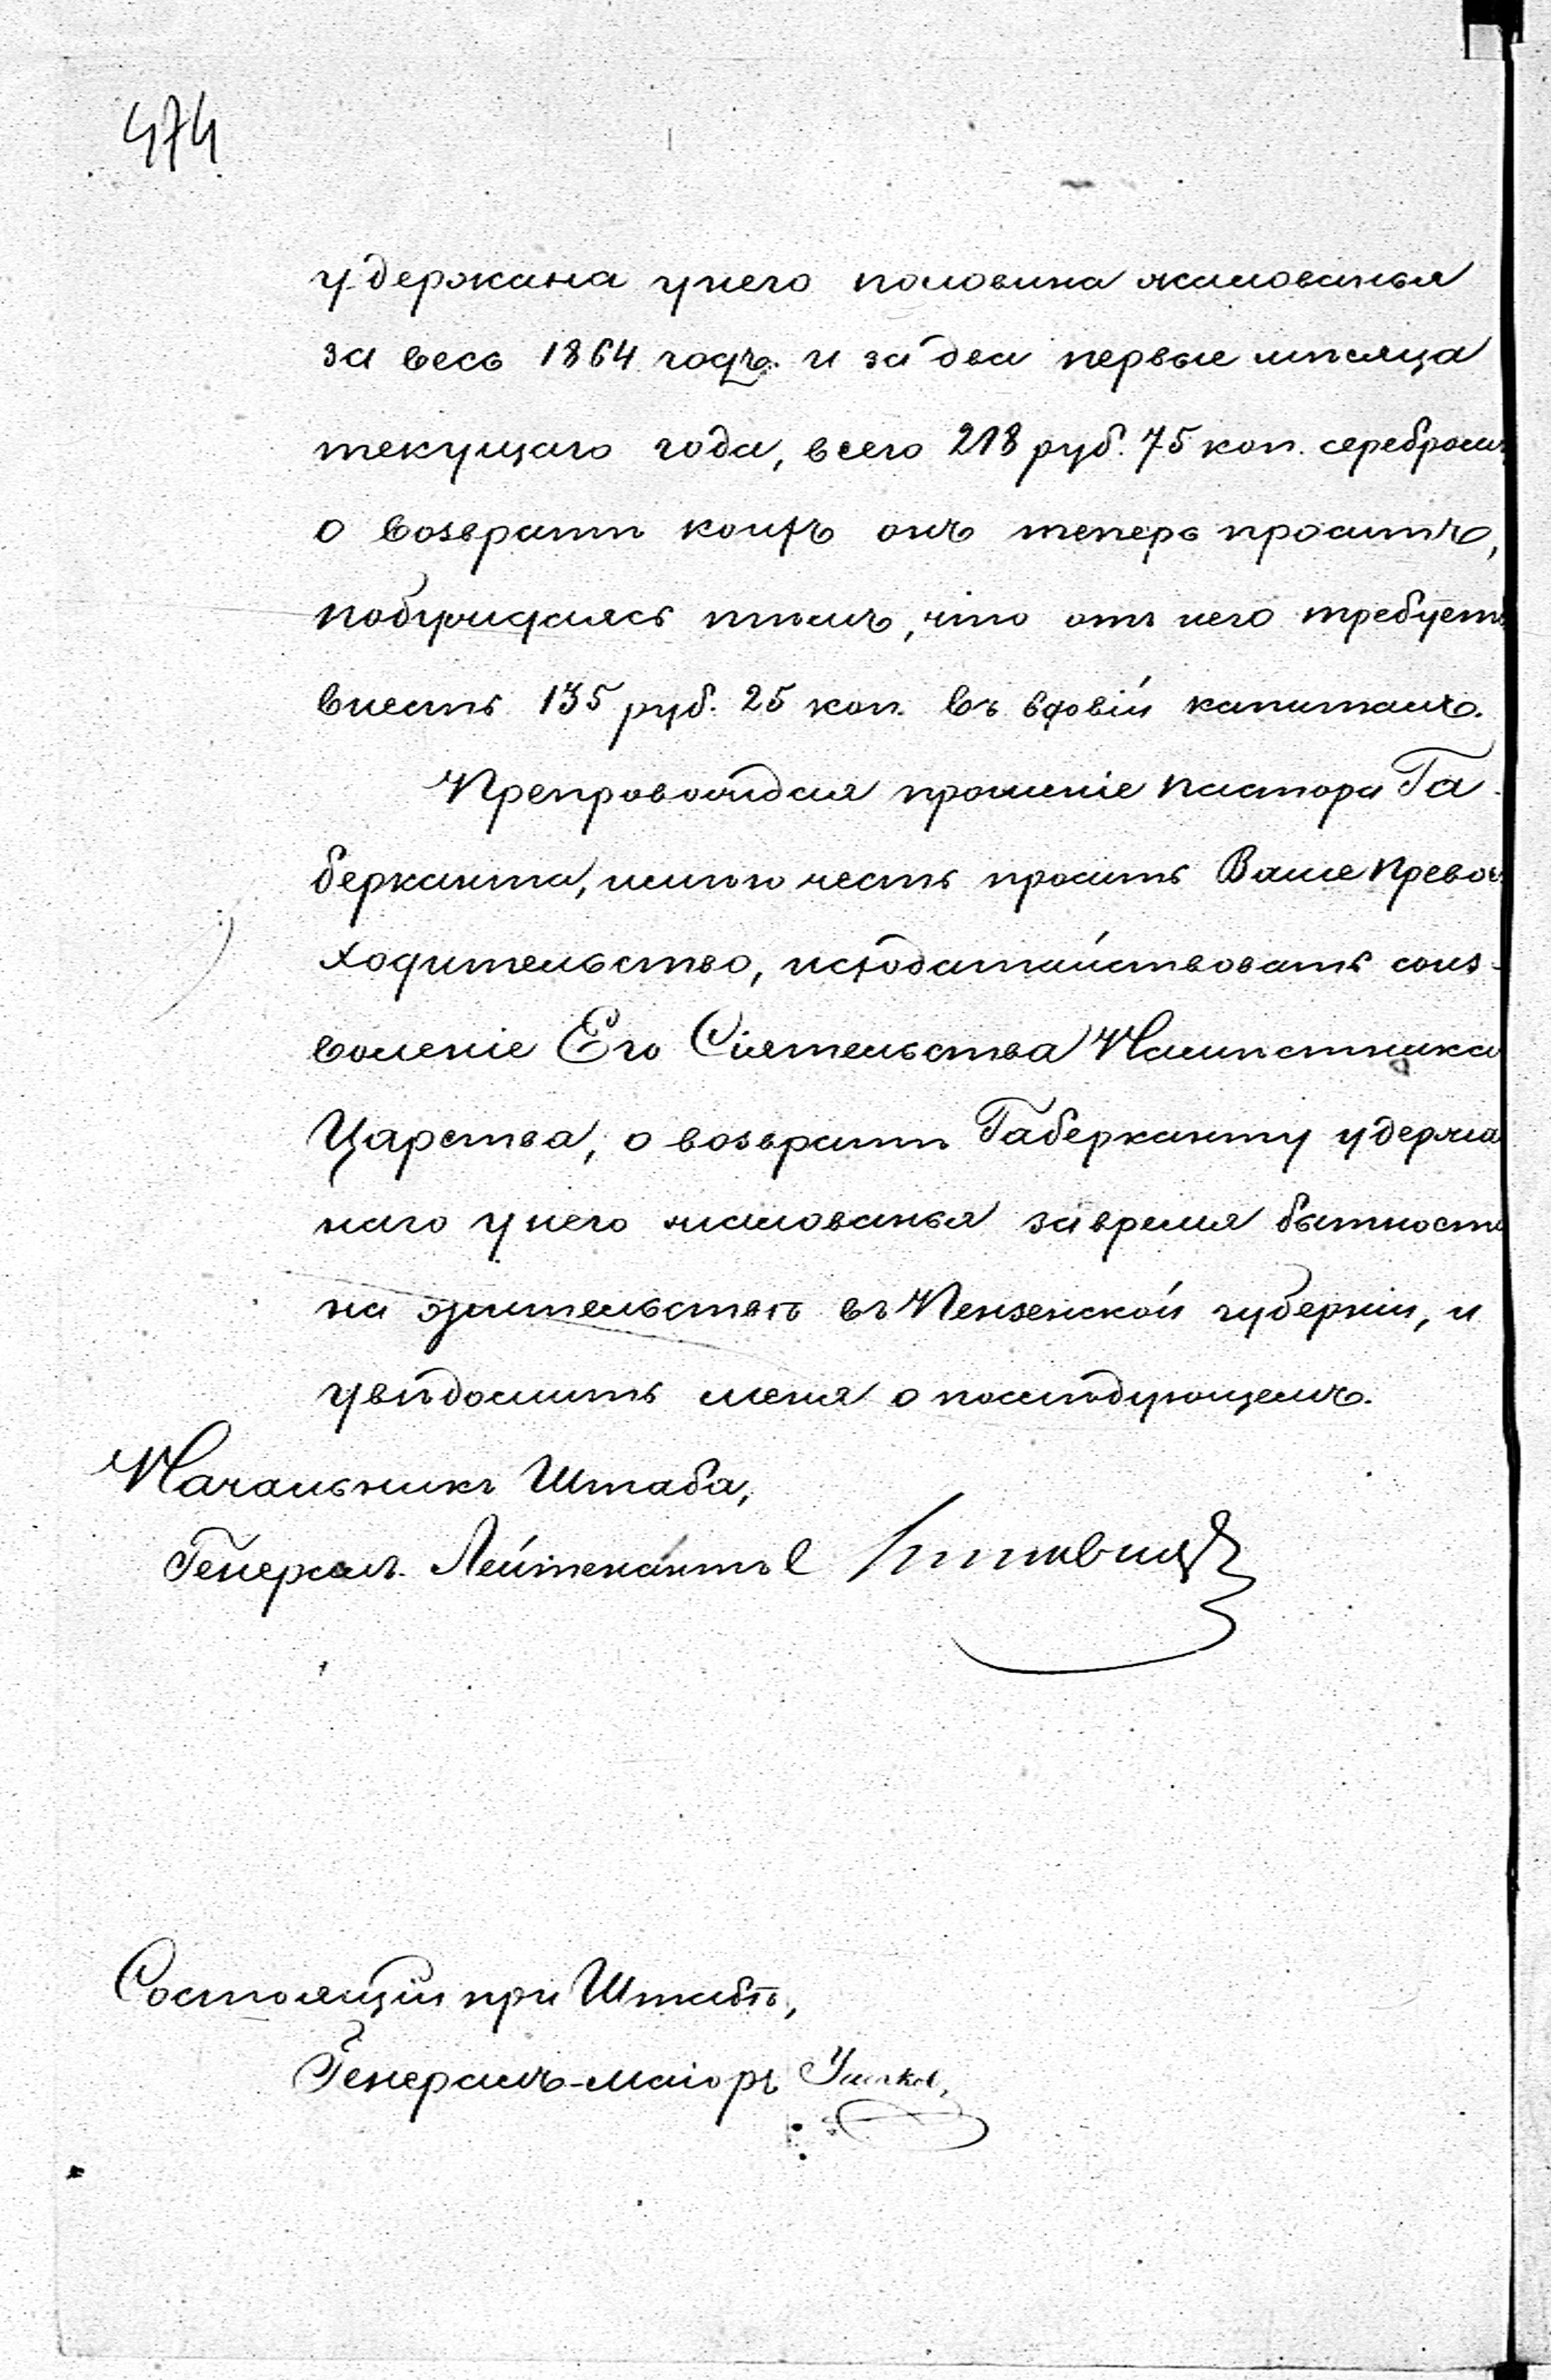 474
удержана у него половина жалованья
за весь 1864 годъ и за два первые мѣсяца
текущаго года, всего 218 руб. 75 коп. серебромъ
о возвратѣ коихъ онъ теперь проситъ,
побуждаясь тѣмъ, что отъ него требуетъ
внесть 135 руб. 25 коп. въ вдовій капиталъ.
Препровождая прошеніе пастора Га
берканта, имѣю честь просить Ваше Превос
ходительство, исходатайствовать соиз-
воленіе Его Сіятельства Намѣстника
Царства, о возвратѣ Габерканту удержа
наго у него жалованья за время бытности
на жительствѣ въ Пензенской губерніи, и
увѣдомить меня о послѣдующемъ.
Начальникъ Штаба,
Генералъ-Лейтенантъ
Состоящій при Штабѣ,
Генералъ-маіоръ